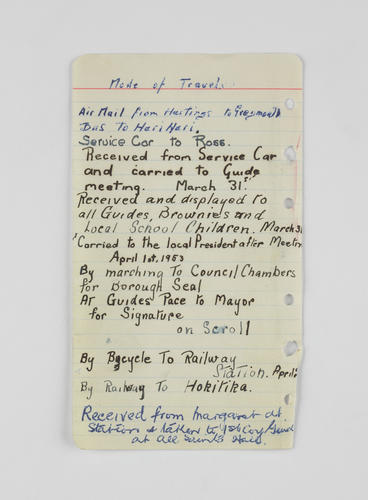 Mode of Travel.
Air Mail from Hastings to Greymouth
Bus to HariHari.
Service Car to Ross.
Received from Service Car
and carried to Guide
meeting. March 31st
Received and displayed to
all Guides, Brownies and
Local School Children. March 31
Carried to the local President after Meeting
April 1st, 1953
By marching To Council Chambers
for Borough Seal
At Guides Pace to Mayor
for Signature
on Scroll
By Bycycle To Railway
Station. April
By Railway To Hokitika.
Received from Margaret at
Station & taken to 1st Coy Guide
at All Saints Hall.